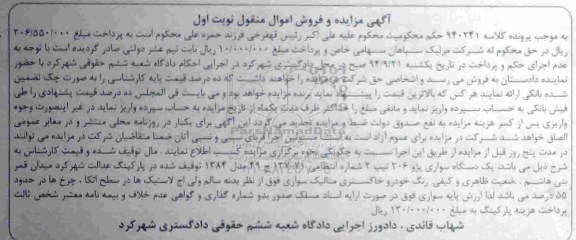 آگهی مزایده و فروش اموال منقول نوبت اول
به موجب پرونده کلاسه ۹۴۰۲۴۱ حکم محکومیت محکوم علیه علی اکبر رئیس قهفرخی فرزند حمزه علی محکوم است به پرداخت مبلغ ۳۰۶/۵۵۰/۰۰۰
ریال در حق محکوم له شرکت مرلیک سپاهان سهامی خاص و پرداخت مبلغ ۱۰/۰۰۰/۰۰۰ ریال بابت نیم عشر دولتی صادر گردیده است با توجه به
عدم اجرای حکم و پرداخت در تاریخ یکشنبه ۹۴/۹/۲۱ صبح در محل دادگستری شهرکرد در اجرایی احکام دادگاه شعبه ششم حقوقی شهرکرد با حضور
نماینده دادستان به فروش می رسد و اشخاصی حق شرکت در مزایده را خواهند داشت که ده درصد قیمت پایه کارشناسی را به صورت چک تضمین
شده بانکی ارائه نمایند هر کس که بالاترین قیمت را پیشنهاد نماید برنده مزایده خواهد بود و می بایست فی المجلس ده درصد قیمت پیشنهادی را طی
فیش بانکی به حساب سپرده واریز نماید و مابقی مبلغ را حداکثر ظرف مدت یکماه از تاریخ مزایده به حساب سپرده واریز نماید در غیر اینصورت وجوه
واریزی پس از کسر هزینه مزایده به نفع صندوق دولت ضبط و مزایده تجدید می گردد این آگهی برای یکبار در روزنامه محلی منتشر و در معابر عمومی
الصاق خواهد شد شرکت در مزایده برای عموم آزاد است اجرا و بستگان سببی و نسبی آنان ضمنا متقاضیان شرکت در مزایده می توانند
در مدت پنج روز قبل از مزایده از طریق این اجرا نسبت به چگونگی نحوه برگزاری مزایده کسب اطلاع نمایند . مال توقیف شده و قیمت کارشناس به
شرح ذیل می باشد. یک دستگاه سواری پژو ۲۰۶ تیپ ۲ شماره انتظامی مدل ۱۳۸۴ توقیف شده در پارکینگ عدالت شهرکرد میدان قمر
بنی هاشم . ضعیت ظاهری و کیفی رنگ خودرو خاکستری متالیک سواری فوق از نظر بدنه سالم ولی اج لاستیک ها در سطح اتکا . چرخ ها در حدود
۵۵ درصد می باشد لذا ارزش پایه سواری فوق در صورت ارایه اسناد مسلک صدور بدو شماره گذاری و گواهی عدم خلاف و بیمه نامه معتبر شخص ثالث
پرداخت هزینه پارکینگ به مبلغ ۱۳۰/۰۰۰/۰۰۰ ریال
شهاب قائدی . دادورز اجرایی دادگاه شعبه ششم حقوقی دادگستری شهرکرد